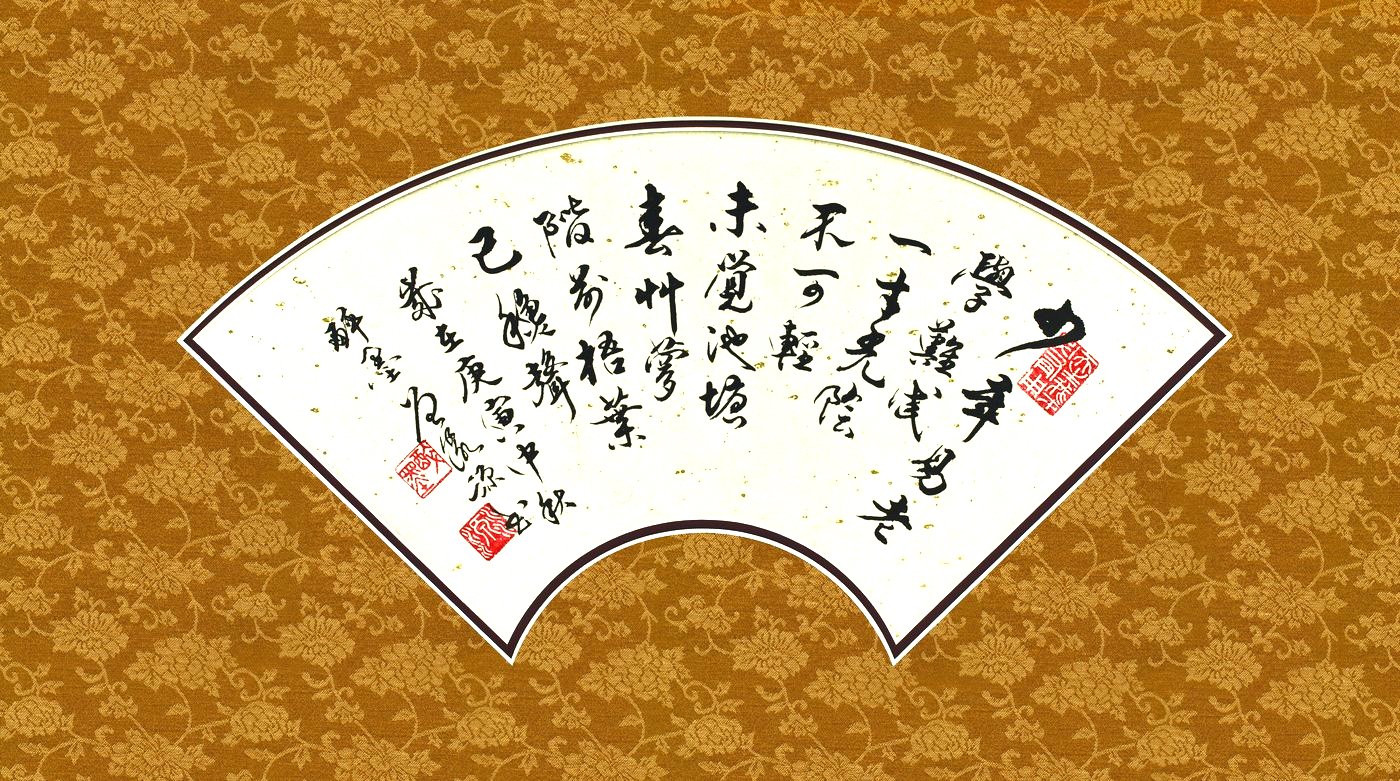 少年易老
學難成
一寸光陰
不可輕
未覺池塘
春艸夢
階前梧葉
已穐聲
歲在庚寅中秋
醉墨
書